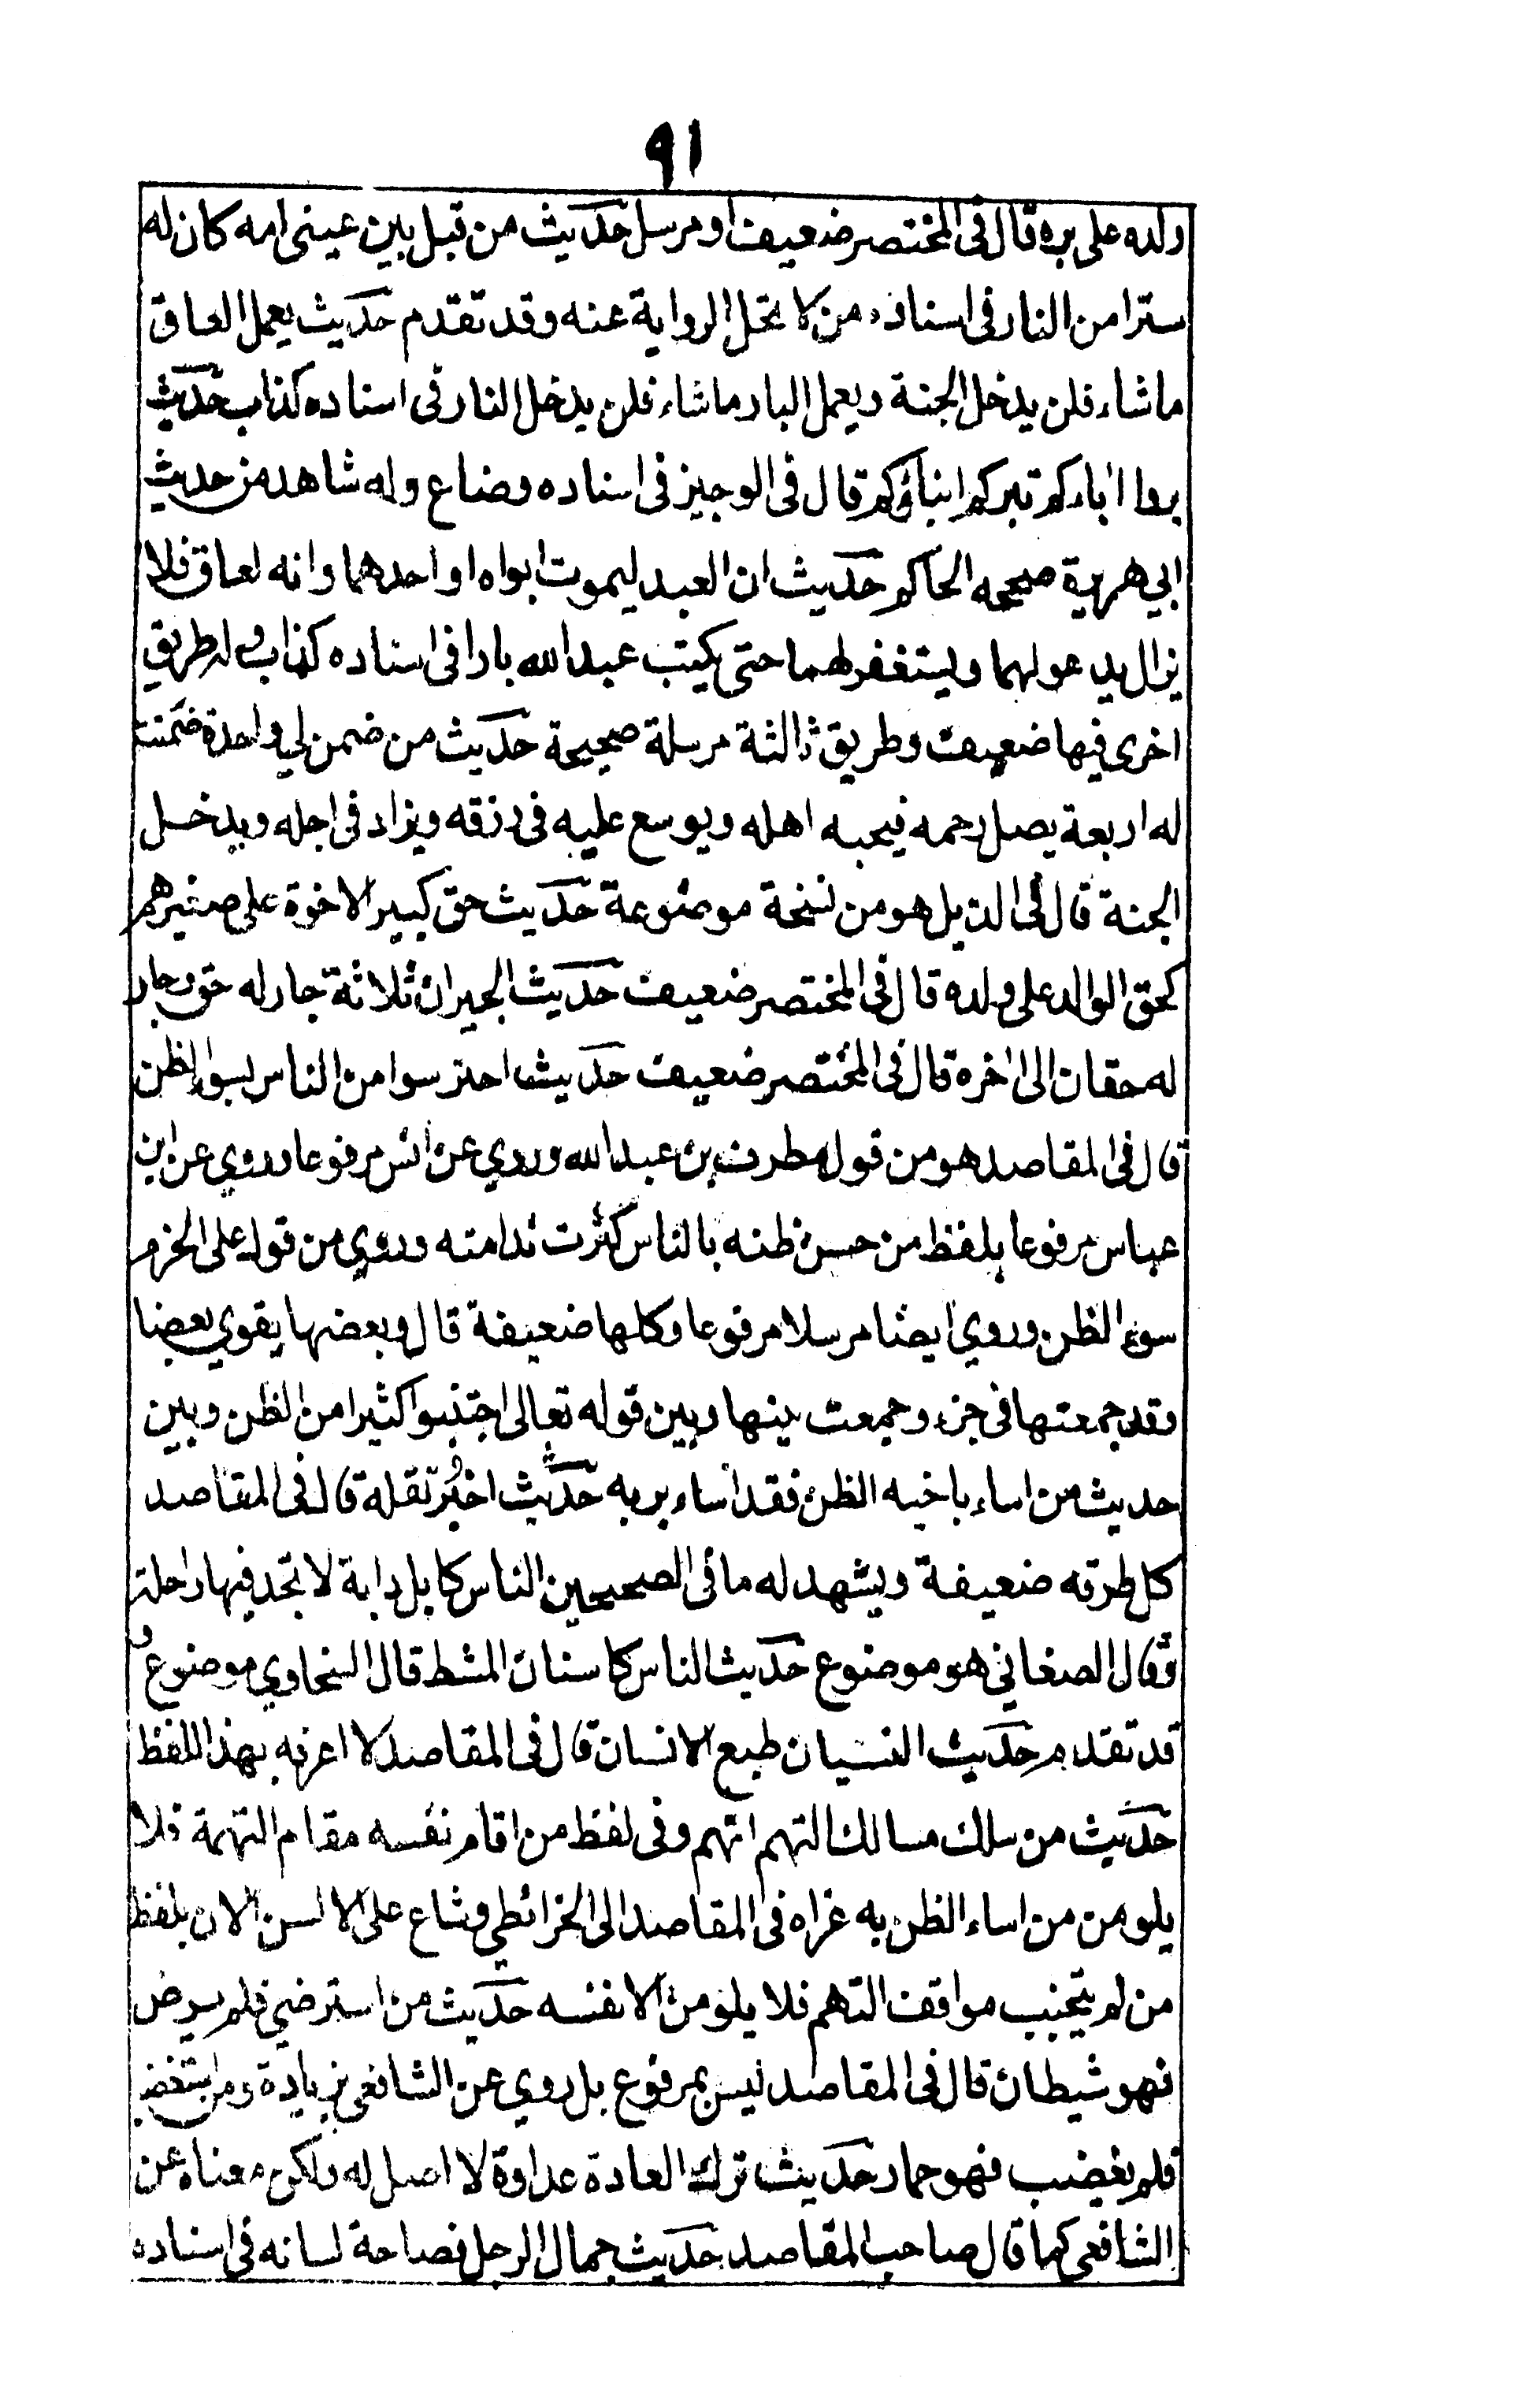 ٩١
ولده على بره قال في المختصر ضعيف او مرسل حديث من قبل بين عيني امه كان له
سترا من النار في اسناده من لا تحل الرواية عنه وقد تقدم حديث يعمل العاق
ما شاء فلن يدخل الجنة ويعمل البار ما شاء فلن يدخل النار في اسناده كذاب حديث
بروا اباءكم تبركم ابناؤكم قال في الوجيز في اسناده وضاع وله شاهد من حديث
ابي هريرة صححه الحاكم حديث ان العبد ليموت ابواه او احدهما وانه لعاق فلا
يزال يدعو لهما ويستغفر لهما حتى يكتب عبد الله بارا في اسناده كذاب وله طريق
اخرى فيها ضعيف وطريق ثالثة مرسلة صحيحة حديث من ضمن لي واحدة ضمنت
له اربعة يصل رحمه فيحبه اهله ويوسع عليه في رزقه ويزاد في اجله ويدخل
الجنة قال في الذيل هو من نسخة موضوعة حديث حق كبير الاخوة على صغيرهم
كحق الوالد على ولده قال في المختصر ضعيف حديث الجيران ثلاثة جار له حق وجار
له حقان الى اخره قال في المختصر ضعيف حديث احترسوا من الناس بسوء الظن
قال في المقاصد هو من قول مطرف بن عبد الله وروي عن انس مرفوعا وروي عن ابن
عباس مرفوعا بلفظ من حسن ظنه بالناس كثرت ندامته وروي من قول على الحزم
سوء الظن وروي ايضا مرسلا مرفوعا وكلها ضعيفة قال وبعضها يقوي بعضا
وقد جمعتها في جزء وجمعت بينها وبين قوله تعالى اجتنبوا كثيرا من الظن وبين
حديث من اساء باخيه الظن فقد اساء بربه حديث اخبر تقله قال في المقاصد
كل طرقه ضعيفة ويشهد له ما في الصحيحين الناس كابل داية لا تجد فيها راحلة
وقال الصغاني هو موضوع حديث الناس كاسنان المشط قال السخاوي موضوع و
قد تقدم حديث النسيان طبع الانسان قال في المقاصد لا اعرفه بهذا اللفظ
حديث من سلك مسالك التهم اتهم وفي لفظ من اقام نفسه مقام التهمة فلا
يلومن من اساء الظن به عزاه في المقاصد الى الخرائطي وشاع على الالسن الان بلفظ
من لم يتجنب مواقف التهم فلا يلومن الا نفسه حديث من استرضي فلم يرض
فهو شيطان قال في المقاصد ليس بمرفوع بل روي عن الشافعي بزيادة ومن استغضب
فلم يغضب فهو حمار حديث ترك العادة عداوة لا اصل له ولكن معناه عن
الشافعي كما قال صاحب المقاصد حديث جمال الرجل فصاحة لسانه في اسناده